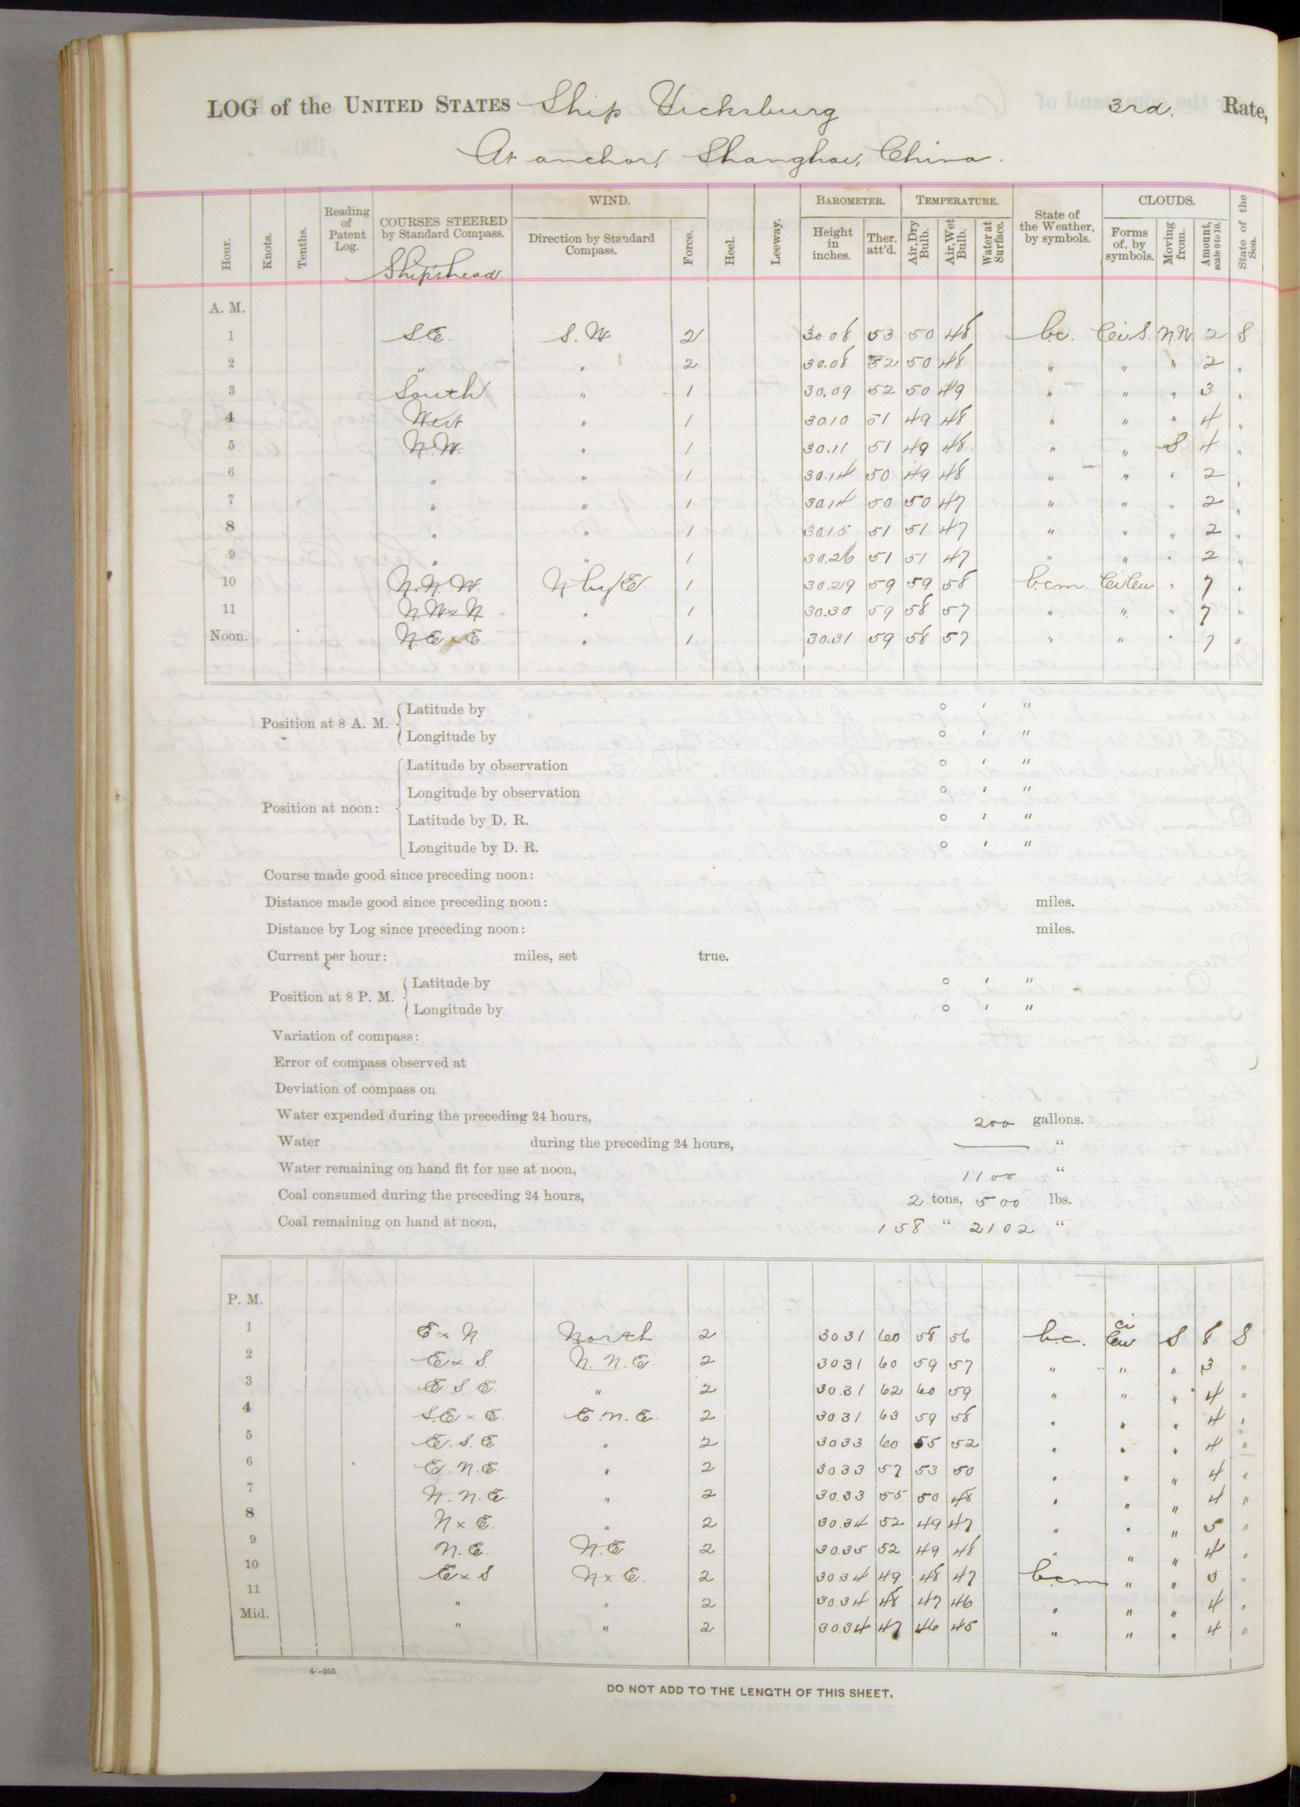 LOG of the UNITED STATES Ship Vicksburg 3rd. Rate,
At anchor, Shanghai, China.
Hour. Knots. Tenths. Reading of Patent Log. COURSES STEERED by Standard Compass. Ship's head WIND. Direction by Standard Compass. Force. Heel. Leeway. BAROMETER. Height in inches. Ther. att'd. TEMPERATURE. Air, Dry Bulb. Air, Wet Bulb. Water at Surface. State of the Weather, by symbols. CLOUDS. Forms of, by symbols. Moving from. Amount, scale 0 to 10. State of the Sea.
A. M.
1 S.E. S.W 2 30.08 53 50 48 b.c. Ci.S. N.W. 2 S
2 " " 2 30.08 52 50 48 " " " 2 "
3 South " 1 30.09 52 50 49 " " " 3 "
4 West " 1 30.10 51 49 48 " " " 4 "
5 N.W. " 1 30.11 51 49 48 " " S 4 "
6 " " 1 30.14 50 49 48 " " " 2 "
7 " " 1 30.14 50 50 47 " " " 2 "
8 " " 1 30.15 51 51 47 " " " 2 "
9 " " 1 30.26 51 51 47 " " " 2 "
10 N.N.W. N by E 1 30.29 59 59 58 b.c.m. Ci Cu " 7 "
11 N.W x N " 1 30.30 59 58 57 " " " 7 "
Noon. N.E x E. " 1 30.31 59 58 57 " " " 7 "
Position at 8 A. M. Latitude by ° ' "
Longitude by ° ' "
Position at noon: Latitude by observation ° ' "
Longitude by observation ° ' "
Latitude by D. R. ° ' "
Longitude by D. R. ° ' "
Course made good since preceding noon:
Distance made good since preceding noon: miles.
Distance by Log since preceding noon: miles.
Current per hour: miles, set true.
Position at 8 P. M. Latitude by ° ' "
Longitude by ° ' "
Variation of compass:
Error of compass observed at
Deviation of compass on
Water expended during the preceding 24 hours, 200 gallons.
Water during the preceding 24 hours, — "
Water remaining on hand fit for use at noon, 1100 "
Coal consumed during the preceding 24 hours, 2 tons, 500 lbs.
Coal remaining on hand at noon, 158 " 2102 "
P. M.
1 E x N North 2 30 31 60 58 56 b.c. Ci Cu S 8 S
2 E x S. N. N. E. 2 30 31 60 59 57 " " " 3 "
3 E S. E. " 2 30.31 62 60 59 " " " 4 "
4 S.E x E. E. N. E. 2 30 31 63 59 58 " " " 4 "
5 E. S. E " 2 30 33 60 55 52 " " " 4 "
6 E. N. E. " 2 30 33 57 53 50 " " " 4 "
7 N. N. E. " 2 30.33 55 50 48 " " " 4 "
8 N x E. " 2 30.34 52 49 47 " " " 5 "
9 N. E. N. E. 2 30.35 52 49 48 " " " 4 "
10 E x S N x E. 2 30 34 49 48 47 b.c.m " " 3 "
11 " " 2 30.34 48 47 46 " " " 4 "
Mid. " " 2 30 34 47 46 45 " " " 4 "
4—266
DO NOT ADD TO THE LENGTH OF THIS SHEET.